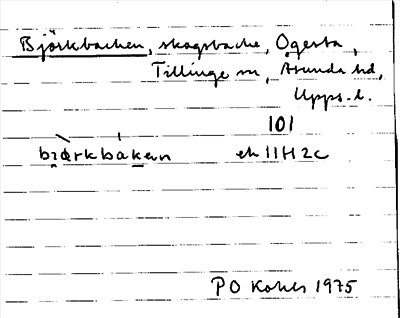 Björkbacken, skogsbacke, Ögesta,
Tillinge sn, Åsunda hd,
Upps. l.
101
bjørkbakən ek 11H2c
PO
1975